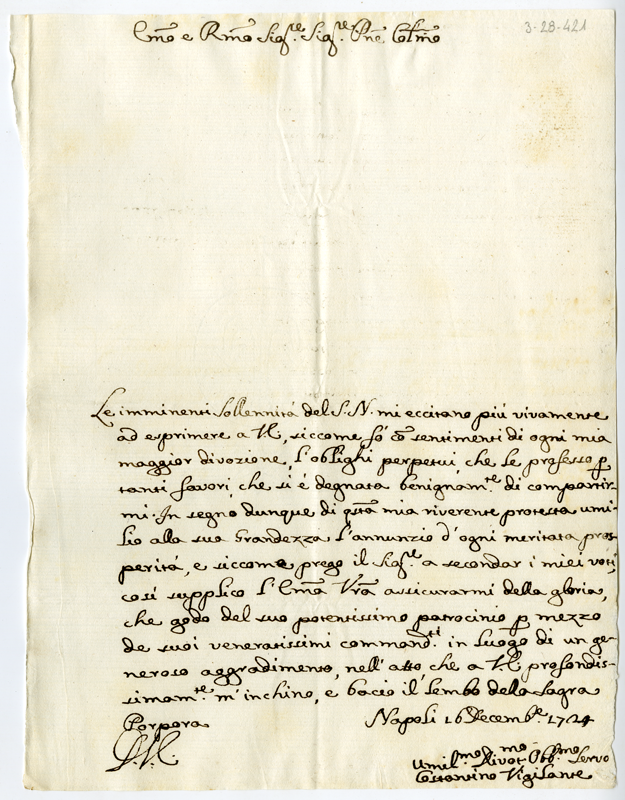 3-28-421
Emo e Rmo Sig.re Sig.re Pne Colmo
Le imminenti sollennitá del S. N. mi eccitano piú vivamente
ad esprimere a VE, siccome fó có sentimenti di ogni mia
maggior divozione, l'oblighi perpetui, che le professo p
tanti favori, che si é degnata benignam.te di compartir-
mi. In segno dunque di qsta mia riverente protesta umi-
lio alla sua Grandezza l'annunzio d'ogni meritata pros-
peritá, e siccome prego il Sig.re a secondar i miei voti,
cosí supplico l'Emza Vra assicurarmi della gloria,
che godo del suo potentissimo patrocinio p mezzo
de suoi veneratissimi command.ti in luogo di un ge-
neroso aggradimento, nell'atto che a VE profondis-
simam.te m'inchino, e bacio il lembo della Sagra
Porpora Napoli 16 Decemb.e 1724
Umil.mo Divot.mo Obb.mo Servo
Costantino Vigilante